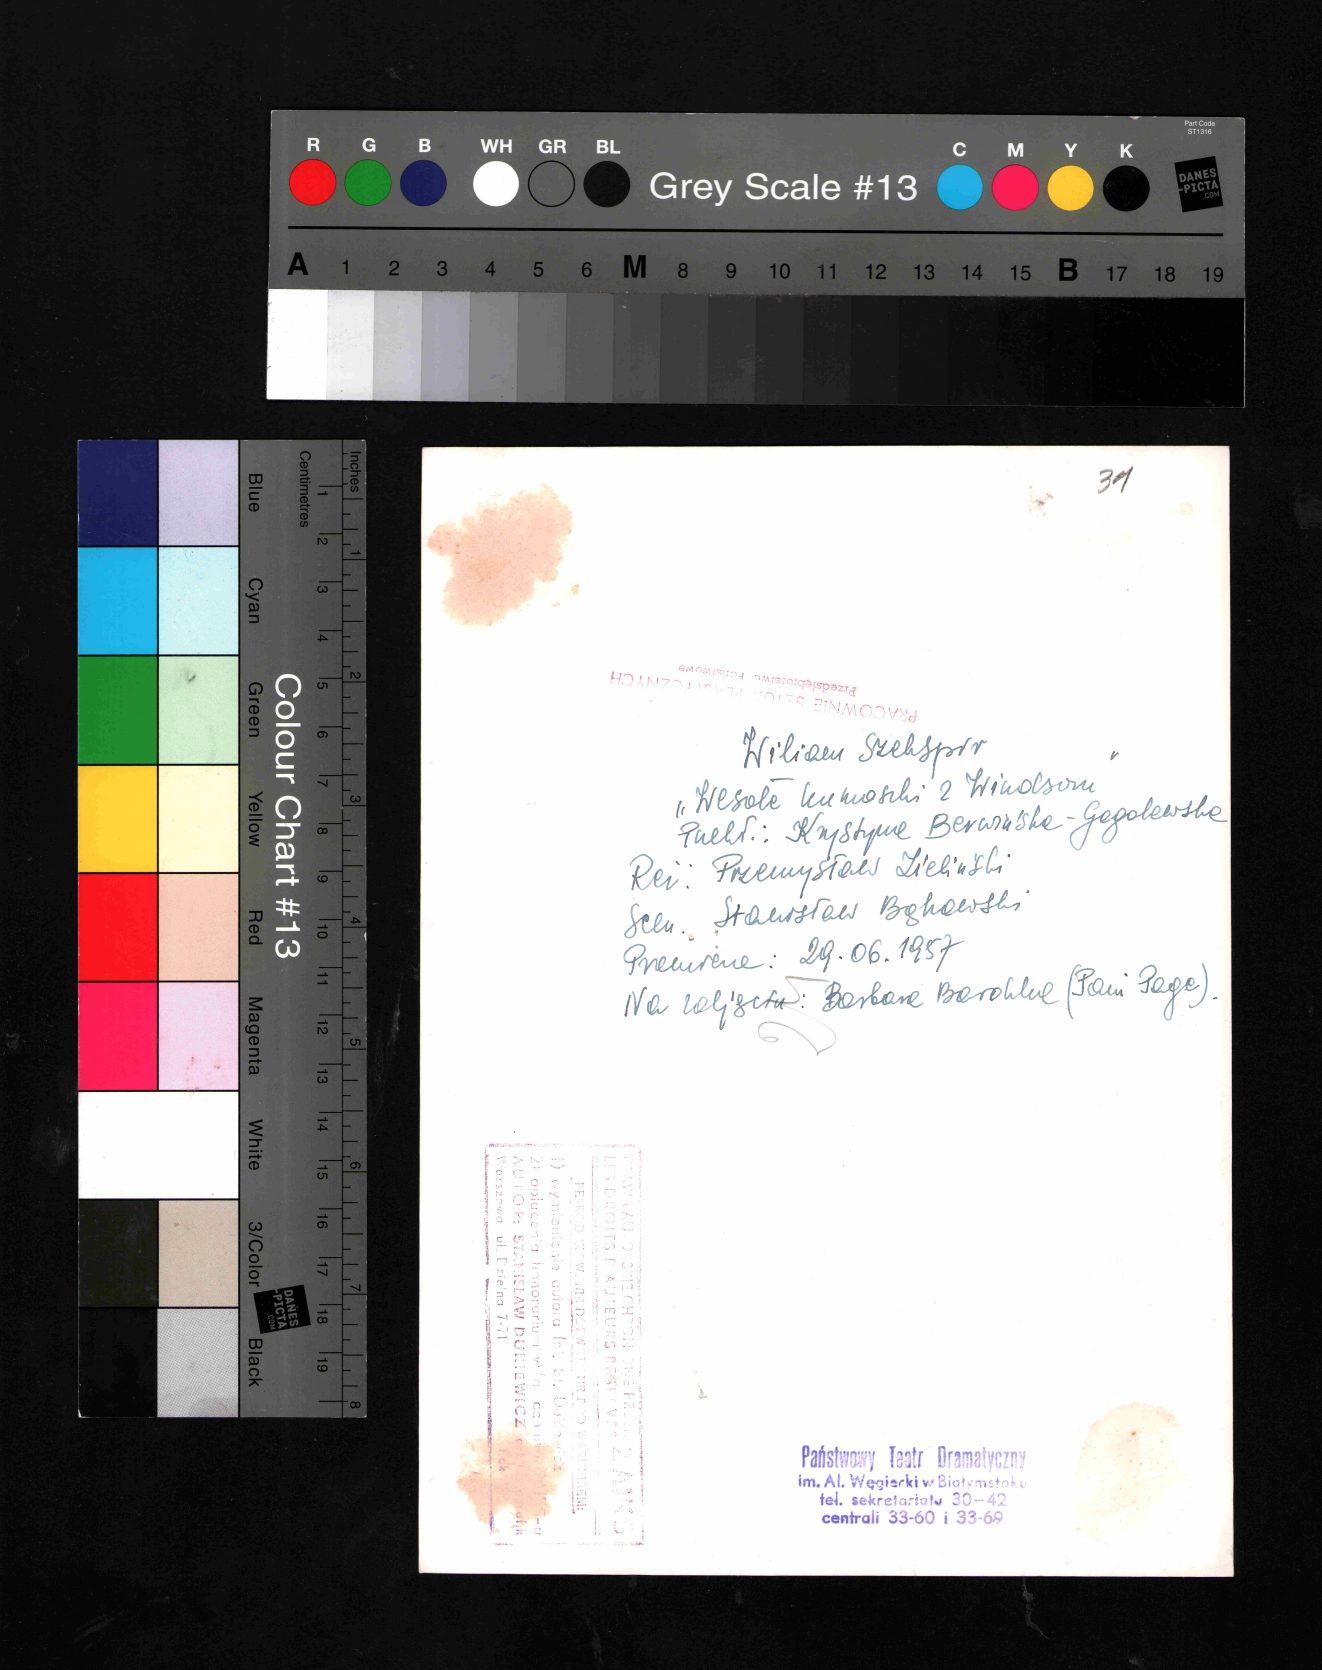 Part Code
ST1316
R G B WH GR BL
Grey Scale #13
C M Y K
DANES
-PICTA
.COM
A 1 2 3 4 5 6 M 8 9 10 11 12 13 14 15 B 17 18 19
Colour Chart #13
Blue
Cyan
Green
Yellow
Red
Magenta
White
3/Color
Black
Centimetres
1 2 3 4 5 6 7 8 9 10 11 12 13 14 15 16 17 18 19
Inches
1 2 3 4 5 6 7 8
DANES
-PICTA
.COM
31
PRACOWNIE SZTUK PLASTYCZNYCH
Przedsiębiorstwo Państwowe
Wiliam Szekspir
„Wesołe kumoszki z Windsoru”
Przekł.: Krystyna Berwińska-Gogolewska
Reż: Przemysław Zieliński
Scen. Stanisław Bąkowski
Premiera: 29.06.1957
Na zdjęciu: Barbara Bardzka (Pani Page).
LES DROITS D'AUTEURS
1) wymienienie autora
2) opłacenia honorarium
AUTOR: STANISŁAW DUKIEWICZ
Warszawa ul. Dzielna 7-71
Państwowy Teatr Dramatyczny
im. Al. Węgierki w Białymstoku
tel. sekretariatu 30-42
centrali 33-60 i 33-69